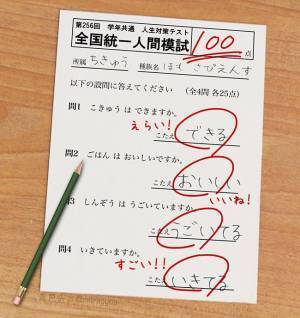 第256回 学年共通 人生対策テスト
全国統一人間模試
100点
所属 ちきゅう 種族名 ほも さぴえんす
以下の設問に答えてください (全4問 各25点)
問1 こきゅう は できますか。
えらい!
こたえ できる
問2 ごはん は おいしいですか。
こたえ おいしい
いいね!
問3 しんぞう は うごいていますか。
こたえ うごいてる
問4 いきていますか。
すごい!!
こたえ いきてる